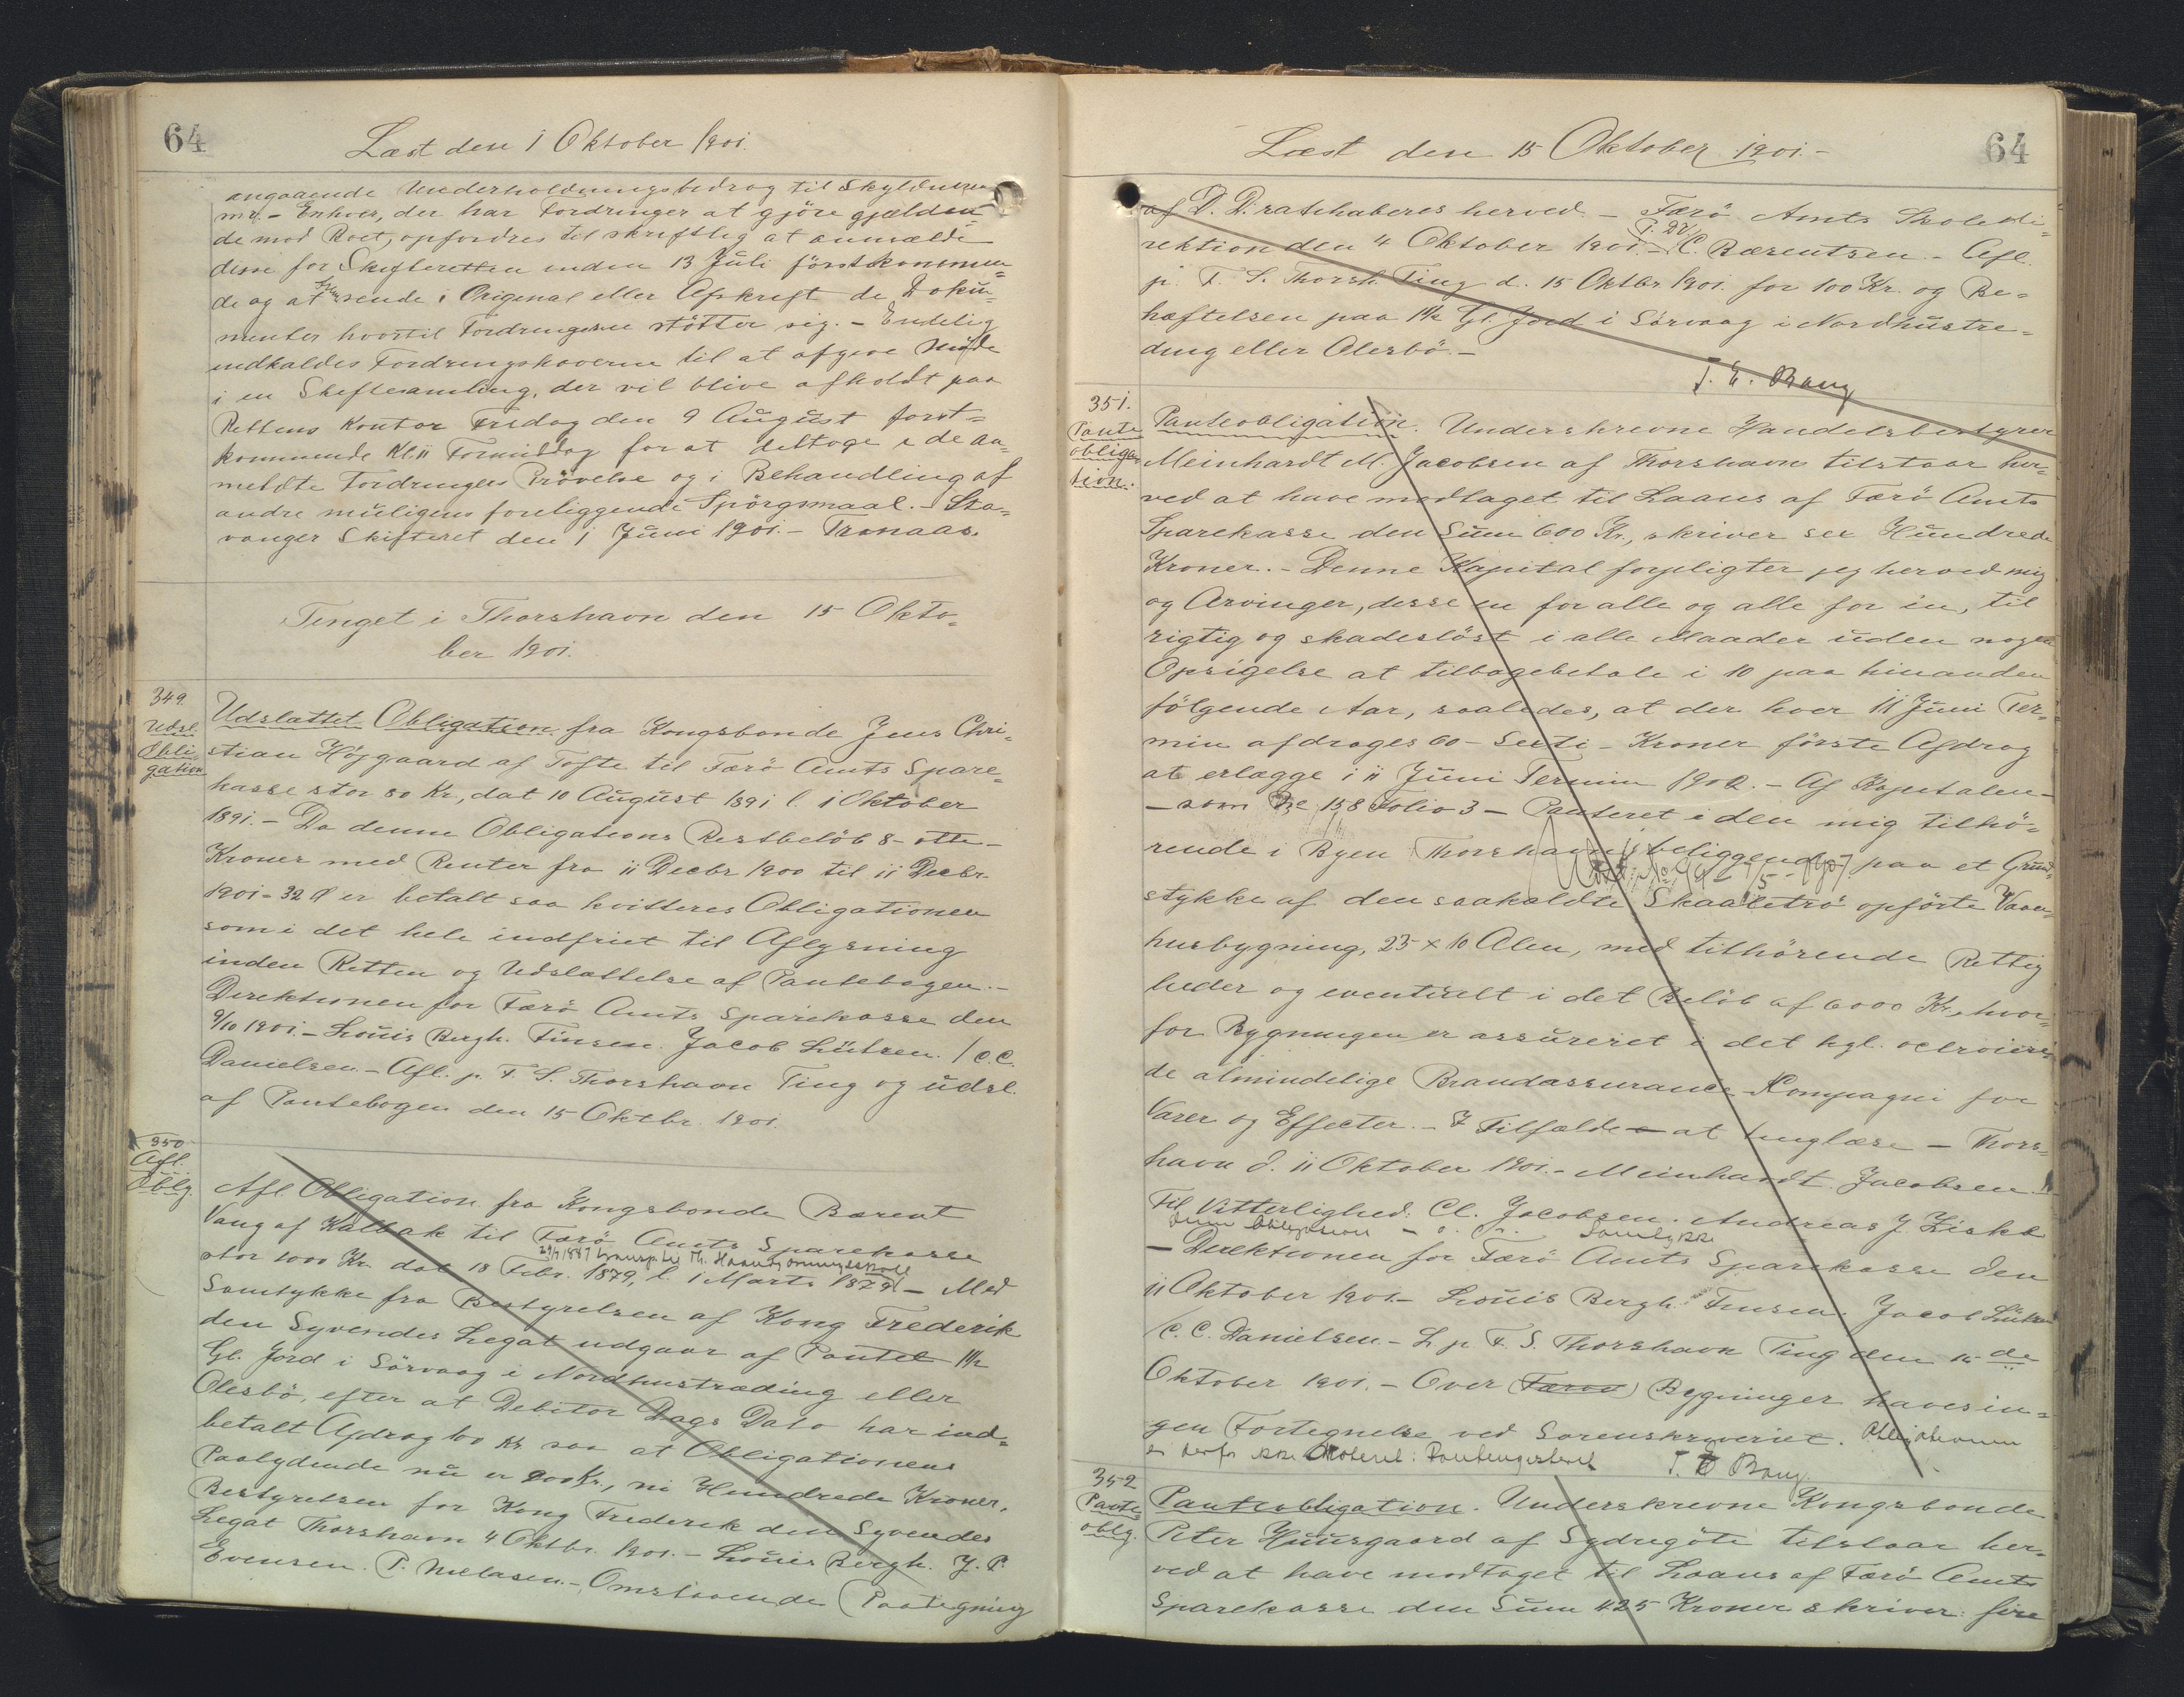 64
Læst den 1 Oktober 1901.
angaaende Underholdningsbidrag til Skyldneren
m.v. - Enhver, der har Fordringer at gjöre gjælden=
de mod Boet, opfordres til skriftlig at anmælde
disse for Skifteretten inden 13 Juli förstkommen=
de og at sende i Original eller Afskrift de Doku=
menter hvortil Fordringerne stötter sig. - Endelig
indkaldes Fordringshaverne til at afgive Möde
i en Skiftesamling, der vil blive afholdt paa
Rettens Kontor Fredag den 9 August först=
kommende Kl. 11 Formiddag for at deltage i de an=
meldte Fordringers Prövelse og i Behandling af
andre muligens foreliggende Spörgsmaal. - Sta=
vanger Skifteret den 1 Juni 1901. - Tronaas.
Tinget i Thorshavn den 15 Okto=
ber 1901.
349.
Udsl.
Obli
gation
Udslettet Obligation fra Kongsbonde Jens Chri=
stian Höjgaard af Tofte til Færö Amts Spare=
kasse stor 80 Kr., dat 10 August 1891 l. 1 Oktober
1891. - Da denne Obligations Restbelöb 8 - otte -
Kroner med Renter fra 11 Decbr 1900 til 11 Decbr.
1901 - 32 Ø er betalt saa kvitteres Obligationen
som i det hele indfriet til Aflysning
inden Retten og Udslættelse af Pantebogen. -
Direktionen for Færö Amts Sparekasse den
9/10 1901. - Louis Bergh. Finsen. Jacob Lützen. / C.C.
Danielsen. - Afl. p. F. S. Thorshavn Ting og udsl.
af Pantebogen den 15 Oktbr. 1901.
350
Afl.
Oblg.
Afl. Obligation fra Kongsbonde Barent
Vang af Kalbak til Færö Amts Sparekasse
29/7 1887 transp. til Th. Haandgjerningsskole
stor 1000 Kr. dat 18 Febr. 1879, l. 1 Marts 1879 - Med
Samtykke fra Bestyrelsen af Kong Frederik
den Syvendes Legat udgaar af Pantet 1 1/2
Gl. Jord i Sörvaag i Nordhustræding eller
Olesbö, efter at Debitor Dags Dato har ind=
betalt Afdrag 100 Kr saa at Obligationens
Paalydende nu er 900 Kr., ni Hundrede Kroner.
Bestyrelsen for Kong Frederik den Syvendes
Legat Thorshavn 4 Oktbr. 1901. - Louis Bergh. J. P.
Evensen. P. Nielasen. - Omstaaende Paategning
64
Læst den 15 Oktober 1901. -
af D. D. ratihaberes herved - Færö Amts Skoledi=
rektion den 4 Oktober 1901. - C. Bærentsen. - Afl.
p. F. S. Thorsh. Ting d. 15 Oktbr 1901. for 100 Kr. og Be=
hæftelsen paa 1 1/2 Gl. Jord i Sörvaag i Nordhustræ=
ding eller Olesbö. -
T. E. Bang
351.
Pante
obliga
tion.
Panteobligation. Underskrevne Handelsbestyrer
Meinhardt M. Jacobsen af Thorshavn tilstaar her=
ved at have modtaget til Laans af Færö Amts
Sparekasse den Sum 600 Kr., skriver sex Hundrede
Kroner. - Denne Kapital forpligter jeg herved mig
og Arvinger, desse en for alle og alle for en, til
rigtig og skadeslöst i alle Maader uden nogen
Opsigelse at tilbagebetale i 10 paa hinanden
fölgende Aar, saaledes, at der hver 11 Juni Ter=
min afdrages 60 - Sexti - Kroner förste Afdrag
at erlægge i 11 Juni Termin 1902. - Af Kapitalen -
- som No 158 Folio 3 - Panteret i den mig tilhö=
rende i Byen Thorshavn beliggende paa et Grund=
stykke af den saakaldte Skaaletrö opförte Vaan=
husbygning, 23 x 10 Alen, med tilhörende Rettig
heder og eventuelt i det Belöb af 6000 Kr., hvor=
for Bygningen er assureret i det kgl. octroiere
de almindelige Brandassurance-Kompagni for
Varer og Effecter. - I Tilfælde at tinglæse - Thors=
havn d. 11 Oktober 1901. - Meinhardt Jacobsen
Til Vitterlighed: Cl. Jacobsen. Andreas J Ziska
denne Obligation Samtykke
- Direktionen for Færö Amts Sparekasse den
11 Oktober 1901. - Louis Bergh. Finsen. Jacob Lützen
/ C. C. Danielsen. - L p F. S. Thorshavn Ting den 15 de
Oktober 1901. - Over Bygninger haves in=
gen Fortegnelse ved Sorenskriveriet. Obligationen
er derfor ikke noteret i Panteregisteret T. E Bang.
352
Pante
oblg.
Panteobligation. Underskrevne Kongsbonde
Peter Huusgaard af Sydrugöte tilstaar her=
ved at have modtaget til Laans af Færö Amts
Sparekasse den Sum 425 Kroner skriver: fire